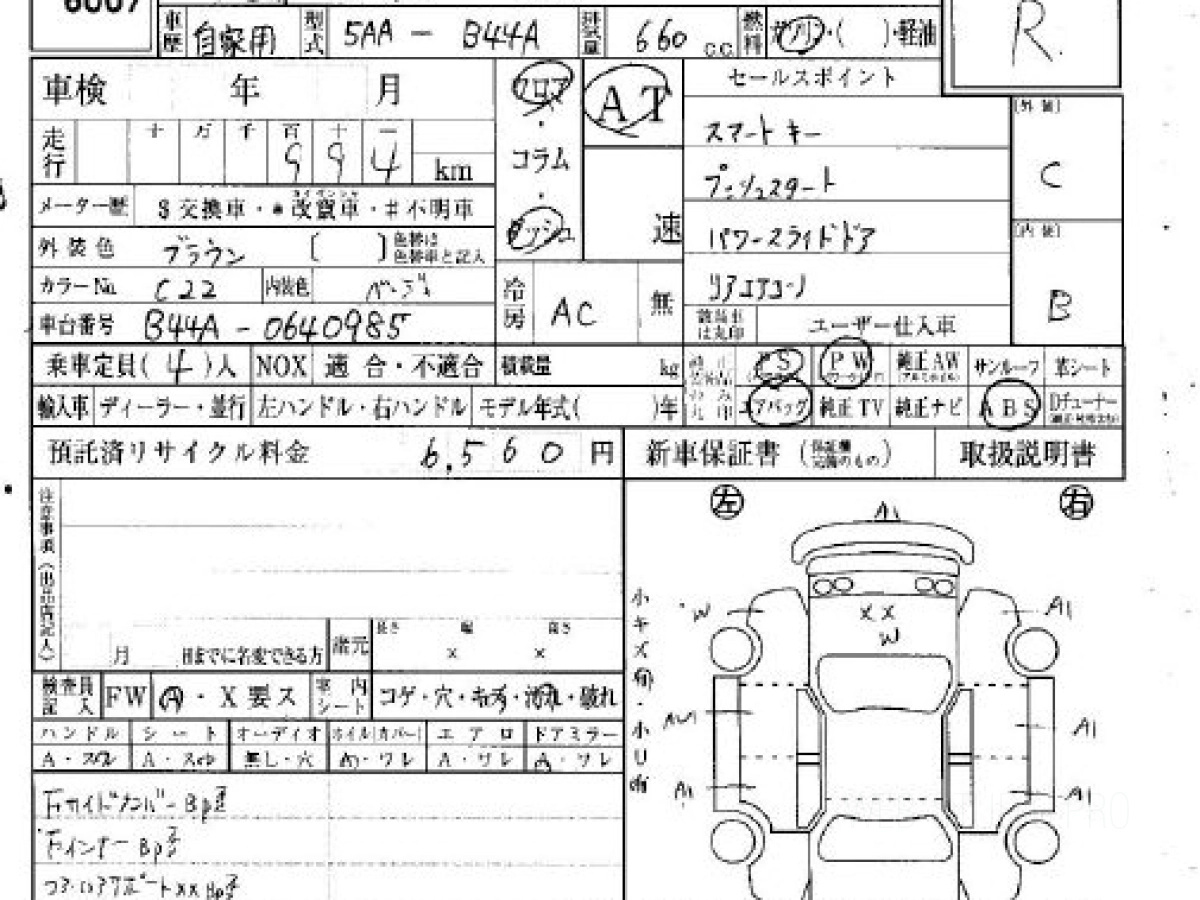 6007
車歴 自家用 型式 5AA - B44A 排気量 660 c.c. 燃料 ガソリン・( )・軽油
R.
車検 年 月 フロア AT セールスポイント
[外装]
走行 十 万 千 百 十 一
9 9 4 km
・コラム・
スマートキー
C
プッシュスタート
メーター歴 $ 交換車・*改賛車・#不明車
ダッシュ 速 パワースライドドア
[内装]
外装色 ブラウン [ ] 色替は色替車と記入
カラーNo. C22 内装色 ベージュ
冷房 AC 無 リアエアコン
B
車台番号 B44A - 0640985
は丸印 ユーザー仕入車
乗車定員( 4 )人 NOX 適合・不適合 積載量 kg PS PW 純正AW サンルーフ 革シート
輸入車 ディーラー・並行 左ハンドル・右ハンドル モデル年式( )年 エアバッグ 純正TV 純正ナビ ABS Dチューナー
預託済リサイクル料金 6,560 円 新車保証書 (保証欄完備のもの) 取扱説明書
注意事項(出品店記入)
左 A1 右
小キズ有・小U有
W XX A1
W
月 日までに名変できる方 諸元 長さ × 幅 × 高さ
検査員記入 FW A・X要ス 室内シート コゲ・穴・キズ・汚れ・破れ
ハンドル シート オーディオ ホイル(カバー) エアロ ドアミラー
A・スレ A・スレ 無し・穴 A・ワレ A・ワレ A・ワレ
A1
A1 A1